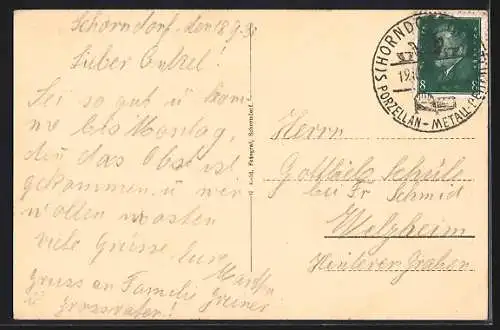 Schorndorf, den 18.9.30
Lieber Onkel!
Sei so gut u. kom-
me bis Montag,
den das Obst ist
gekommen u. wir
wollen mosten
viele Grüsse Eure
Martha
Gruss an Familie Greiner
u. Grossvater!
Schorndorf
SCHORNDORF
PORZELLAN - METALL
8
Herrn
Gottlieb Schüle
bei Fr Schmid
Welzheim
Hinterer Graben